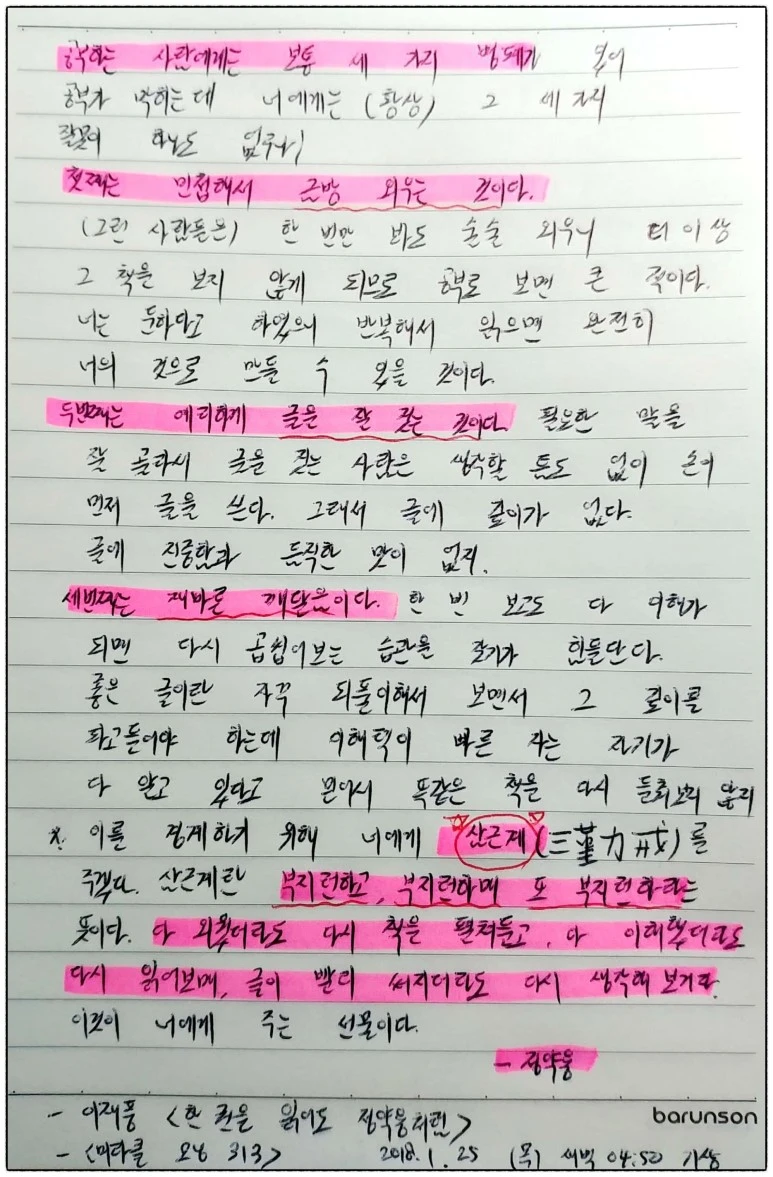 공부하는 사람에게는 보통 세 가지 병폐가 있어
공부가 막히는데 너에게는 (황상) 그 세 가지
잘못이 하나도 없구나!
첫째는 민첩해서 금방 외우는 것이다.
(그런 사람들은) 한 번만 봐도 술술 외우니 더 이상
그 책을 보지 않게 되므로 공부로 보면 큰 적이다.
너는 둔하다고 하였으니 반복해서 읽으면 완전히
너의 것으로 만들 수 있을 것이다.
두번째는 예리하게 글을 잘 짓는 것이다. 필요한 말을
잘 골라서 글을 짓는 사람은 생각할 틈도 없이 손이
먼저 글을 쓴다. 그래서 글에 깊이가 없다.
글에 진중함과 듬직한 맛이 없지.
세번째는 재빠른 깨달음이다. 한 번 보고도 다 이해가
되면 다시 곱씹어보는 습관을 갖기가 힘들단다.
좋은 글이란 자꾸 되풀이해서 보면서 그 깊이를
파고들어야 하는데 이해력이 빠른 자는 자기가
다 알고 있다고 믿어서 똑같은 책을 다시 들춰보지 않지
* 이를 경계하기 위해 너에게 삼근계(三菫力戒)를
주겠다. 삼근계란 부지런하고, 부지런하며 또 부지런하라는
뜻이다. 다 외웠더라도 다시 책을 펼쳐들고, 다 이해했더라도
다시 읽어보며, 글이 빨리 써지더라도 다시 생각해 보거라.
이것이 너에게 주는 선물이다.
- 정약용
- 이재풍 <한 권을 읽어도 정약용처럼>
barunson
- <미라클 모닝 313> 2018.1.25 (목) 새벽 04:50 기상